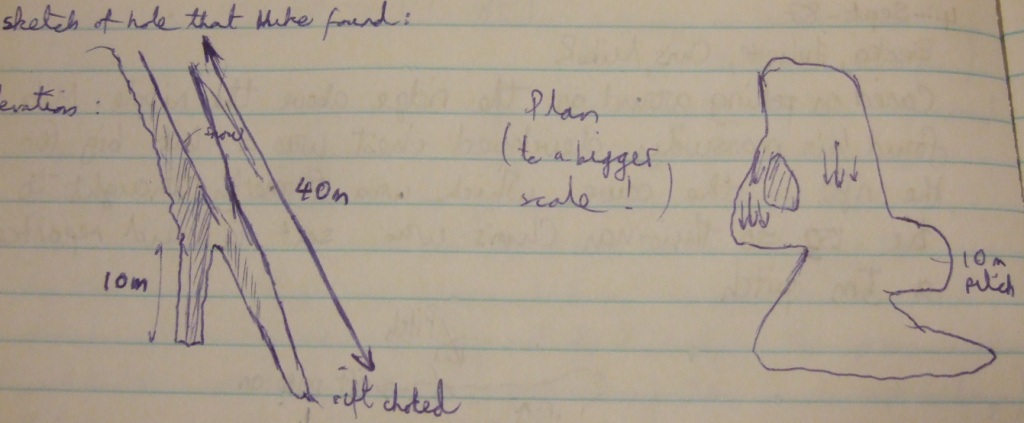 sketch of hole that Mike found:
levation:
snow
40m
10m
rift choked
Plan
(to a bigger
scale!)
10m
pitch